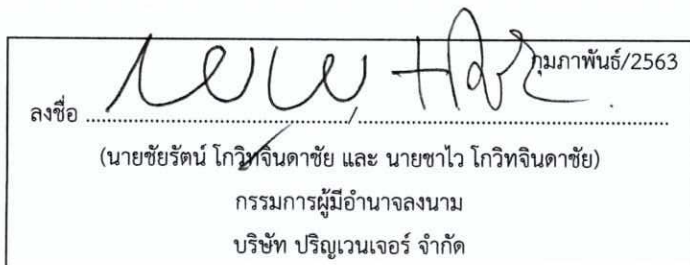 กุมภาพันธ์/2563
ลงชื่อ ................................/................................
(นายชัยรัตน์ โกวิทจินดาชัย และ นายชาไว โกวิทจินดาชัย)
กรรมการผู้มีอำนาจลงนาม
บริษัท ปริญเวนเจอร์ จำกัด